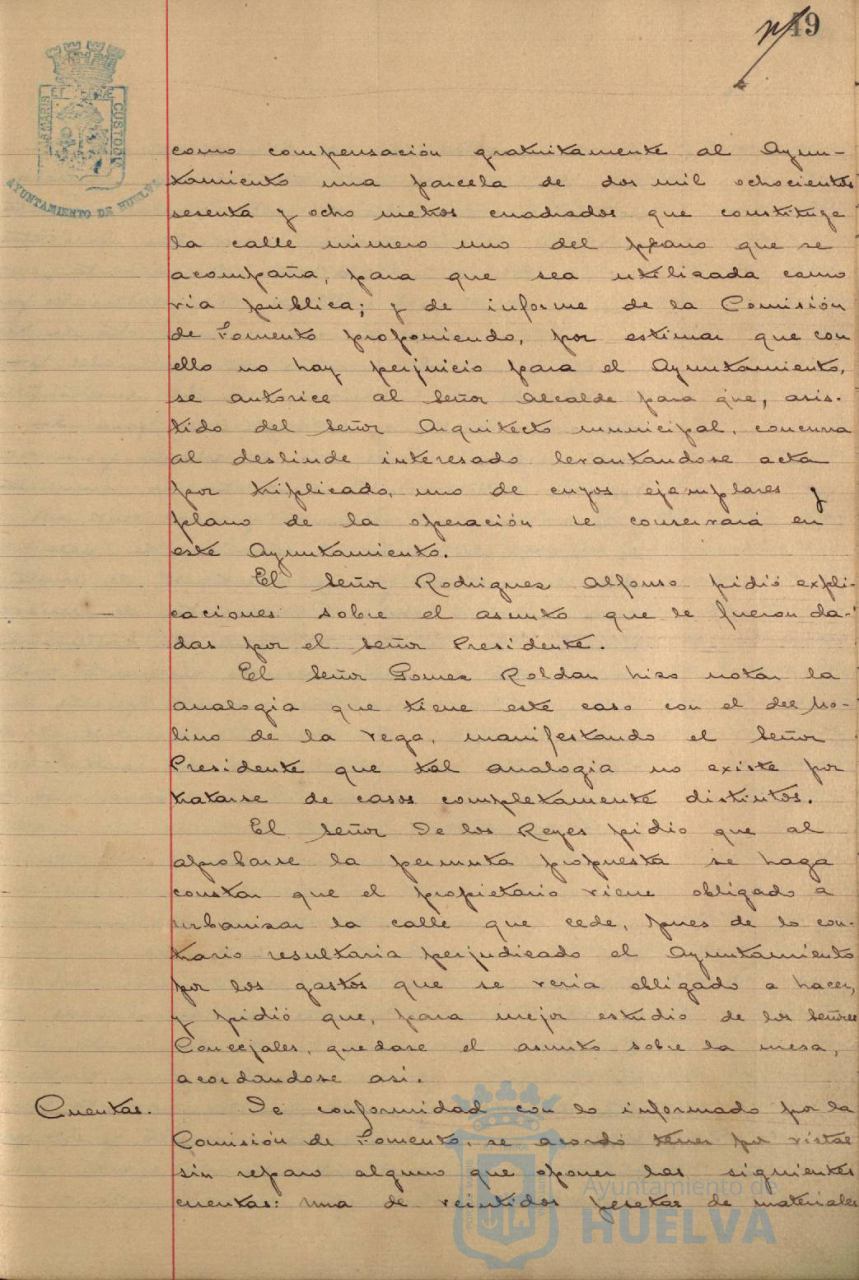 49
PORTUS MARIS ET TERRAE CUSTODIA
AYUNTAMIENTO DE HUELVA
como compensación gratuitamente al Ayun-
tamiento una parcela de dos mil ochocientos
sesenta y ocho metros cuadrados que constituye
la calle número uno del plano que se
acompaña, para que sea utilizada como
vía pública; y de informe de la Comisión
de Fomento proponiendo, por estimar que con
ello no hay perjuicio para el Ayuntamiento,
se autorice al Señor Alcalde para que, asis-
tido del Señor Arquitecto municipal, concurra
al deslinde interesado levantandose acta
por triplicado, uno de cuyos ejemplares y
plano de la operación se conservará en
este Ayuntamiento.
El Señor Rodriguez Alfonso pidió expli-
caciones sobre el asunto que le fueron da-
das por el Señor Presidente.
El Señor Gomez Roldan hizo notar la
analogia que tiene este caso con el del Mo-
lino de la Vega, manifestando el Señor
Presidente que tal analogia no existe por
tratarse de casos completamente distintos.
El Señor De los Reyes pidio que al
aprobarse la permuta propuesta se haga
constar que el propietario viene obligado a
urbanizar la calle que cede, pues de lo con-
trario resultaria perjudicado el Ayuntamiento
por los gastos que se veria obligado a hacer,
y pidió que, para mejor estudio de los Señores
Concejales, quedase el asunto sobre la mesa,
acordandose asi.
Cuentas. De conformidad con lo informado por la
Comisión de Fomento, se acordó tener por vistas
sin reparo alguno que oponer las siguientes
cuentas: una de veintidos pesetas de materiales
Ayuntamiento de
HUELVA